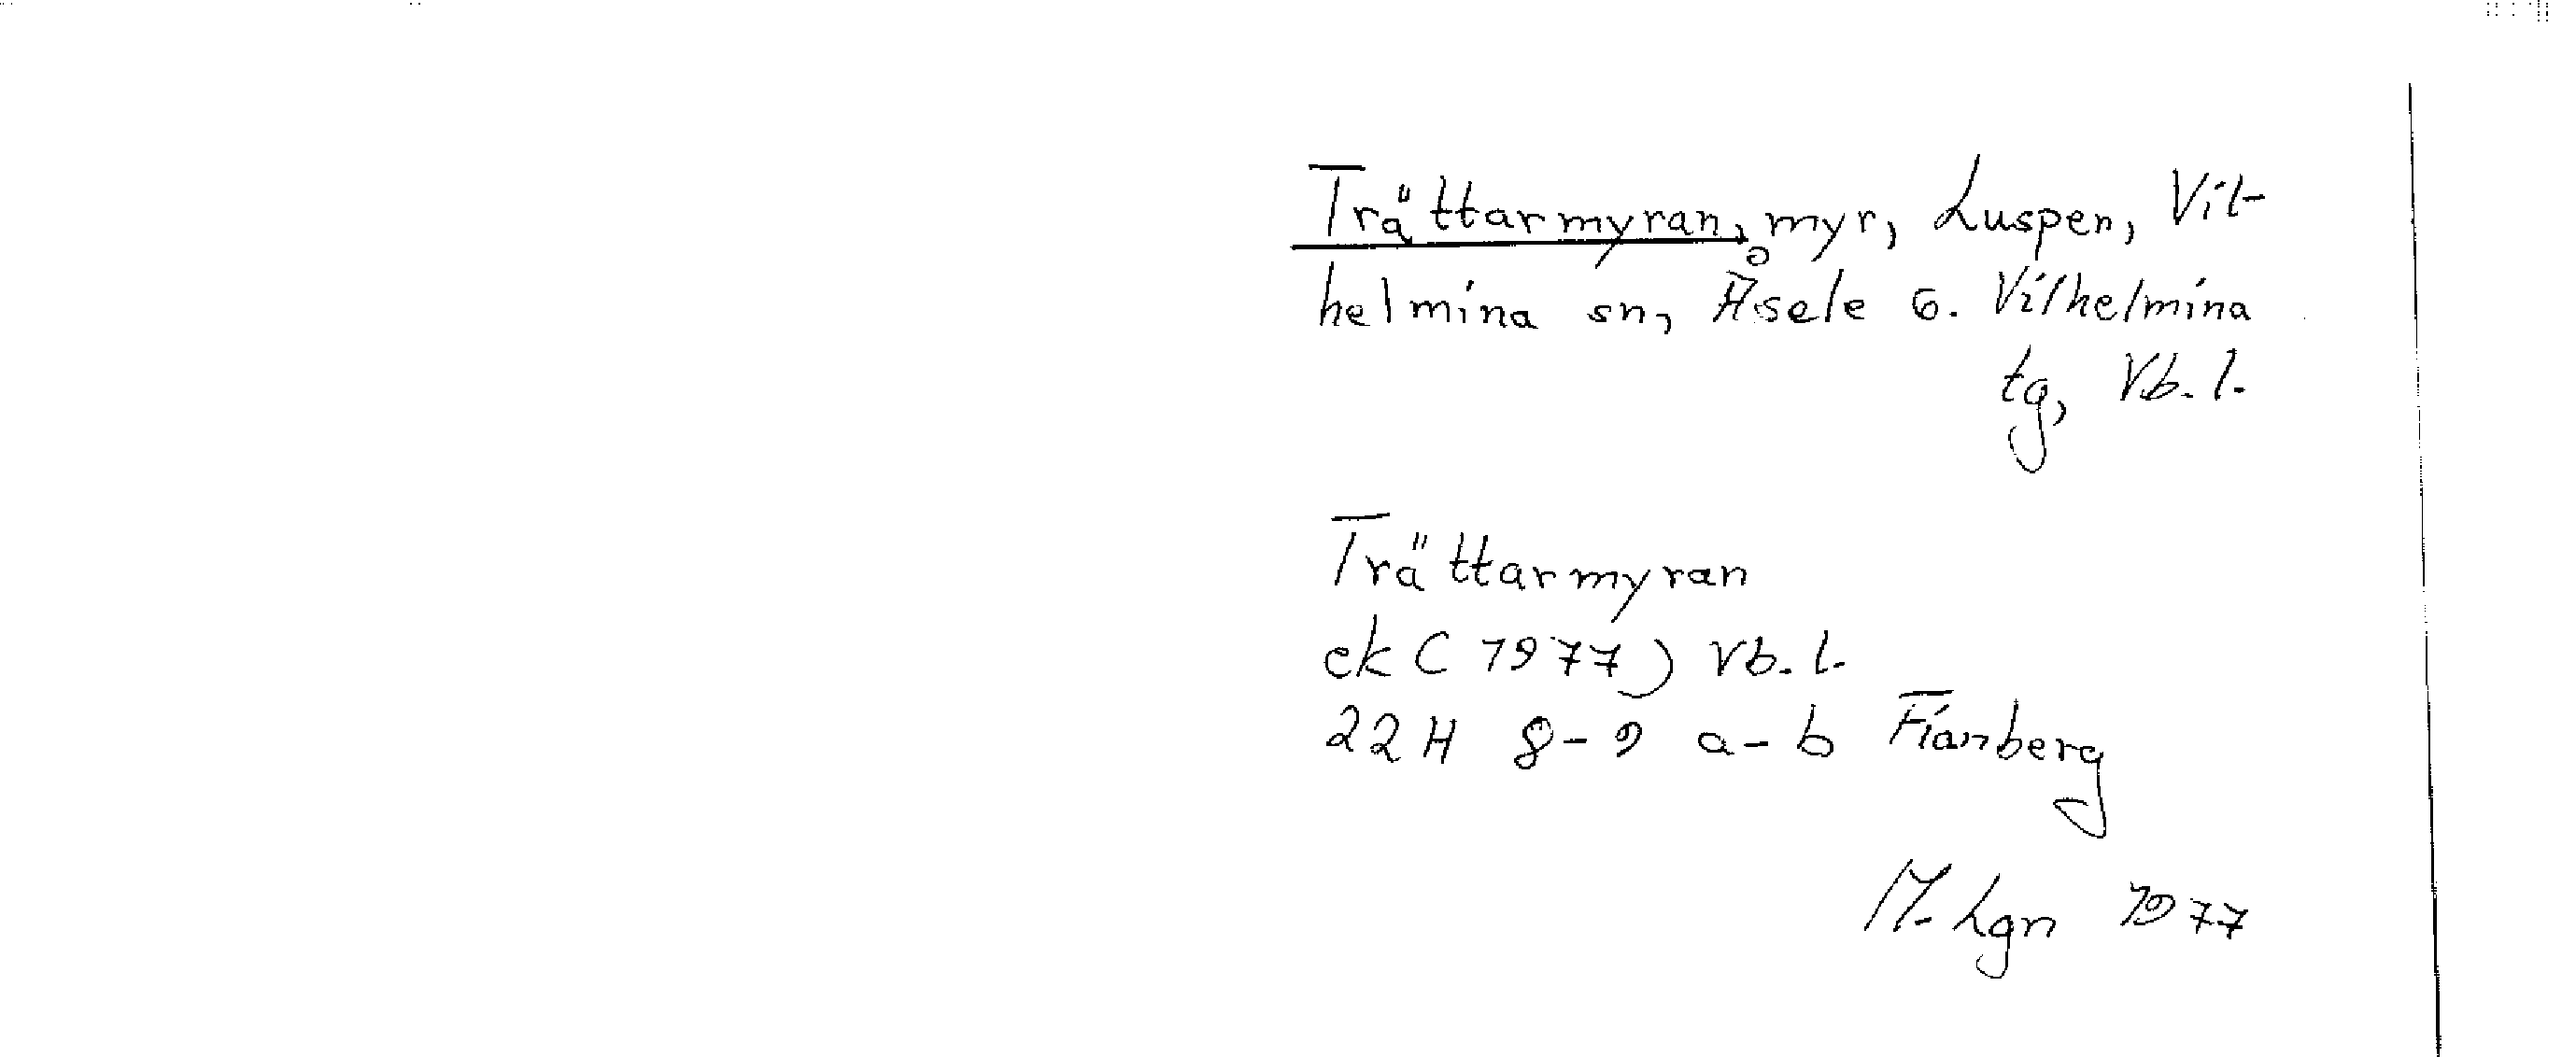 Trättarmyran, myr, Luspen, Vil-
helmina sn, Åsele 6. Vilhelmina
tg, Vb. l.
Trättarmyran
ek ( 1977 ) Vb. l.
22 H 8-9 a-b Fianberg
M. Lgn 1977